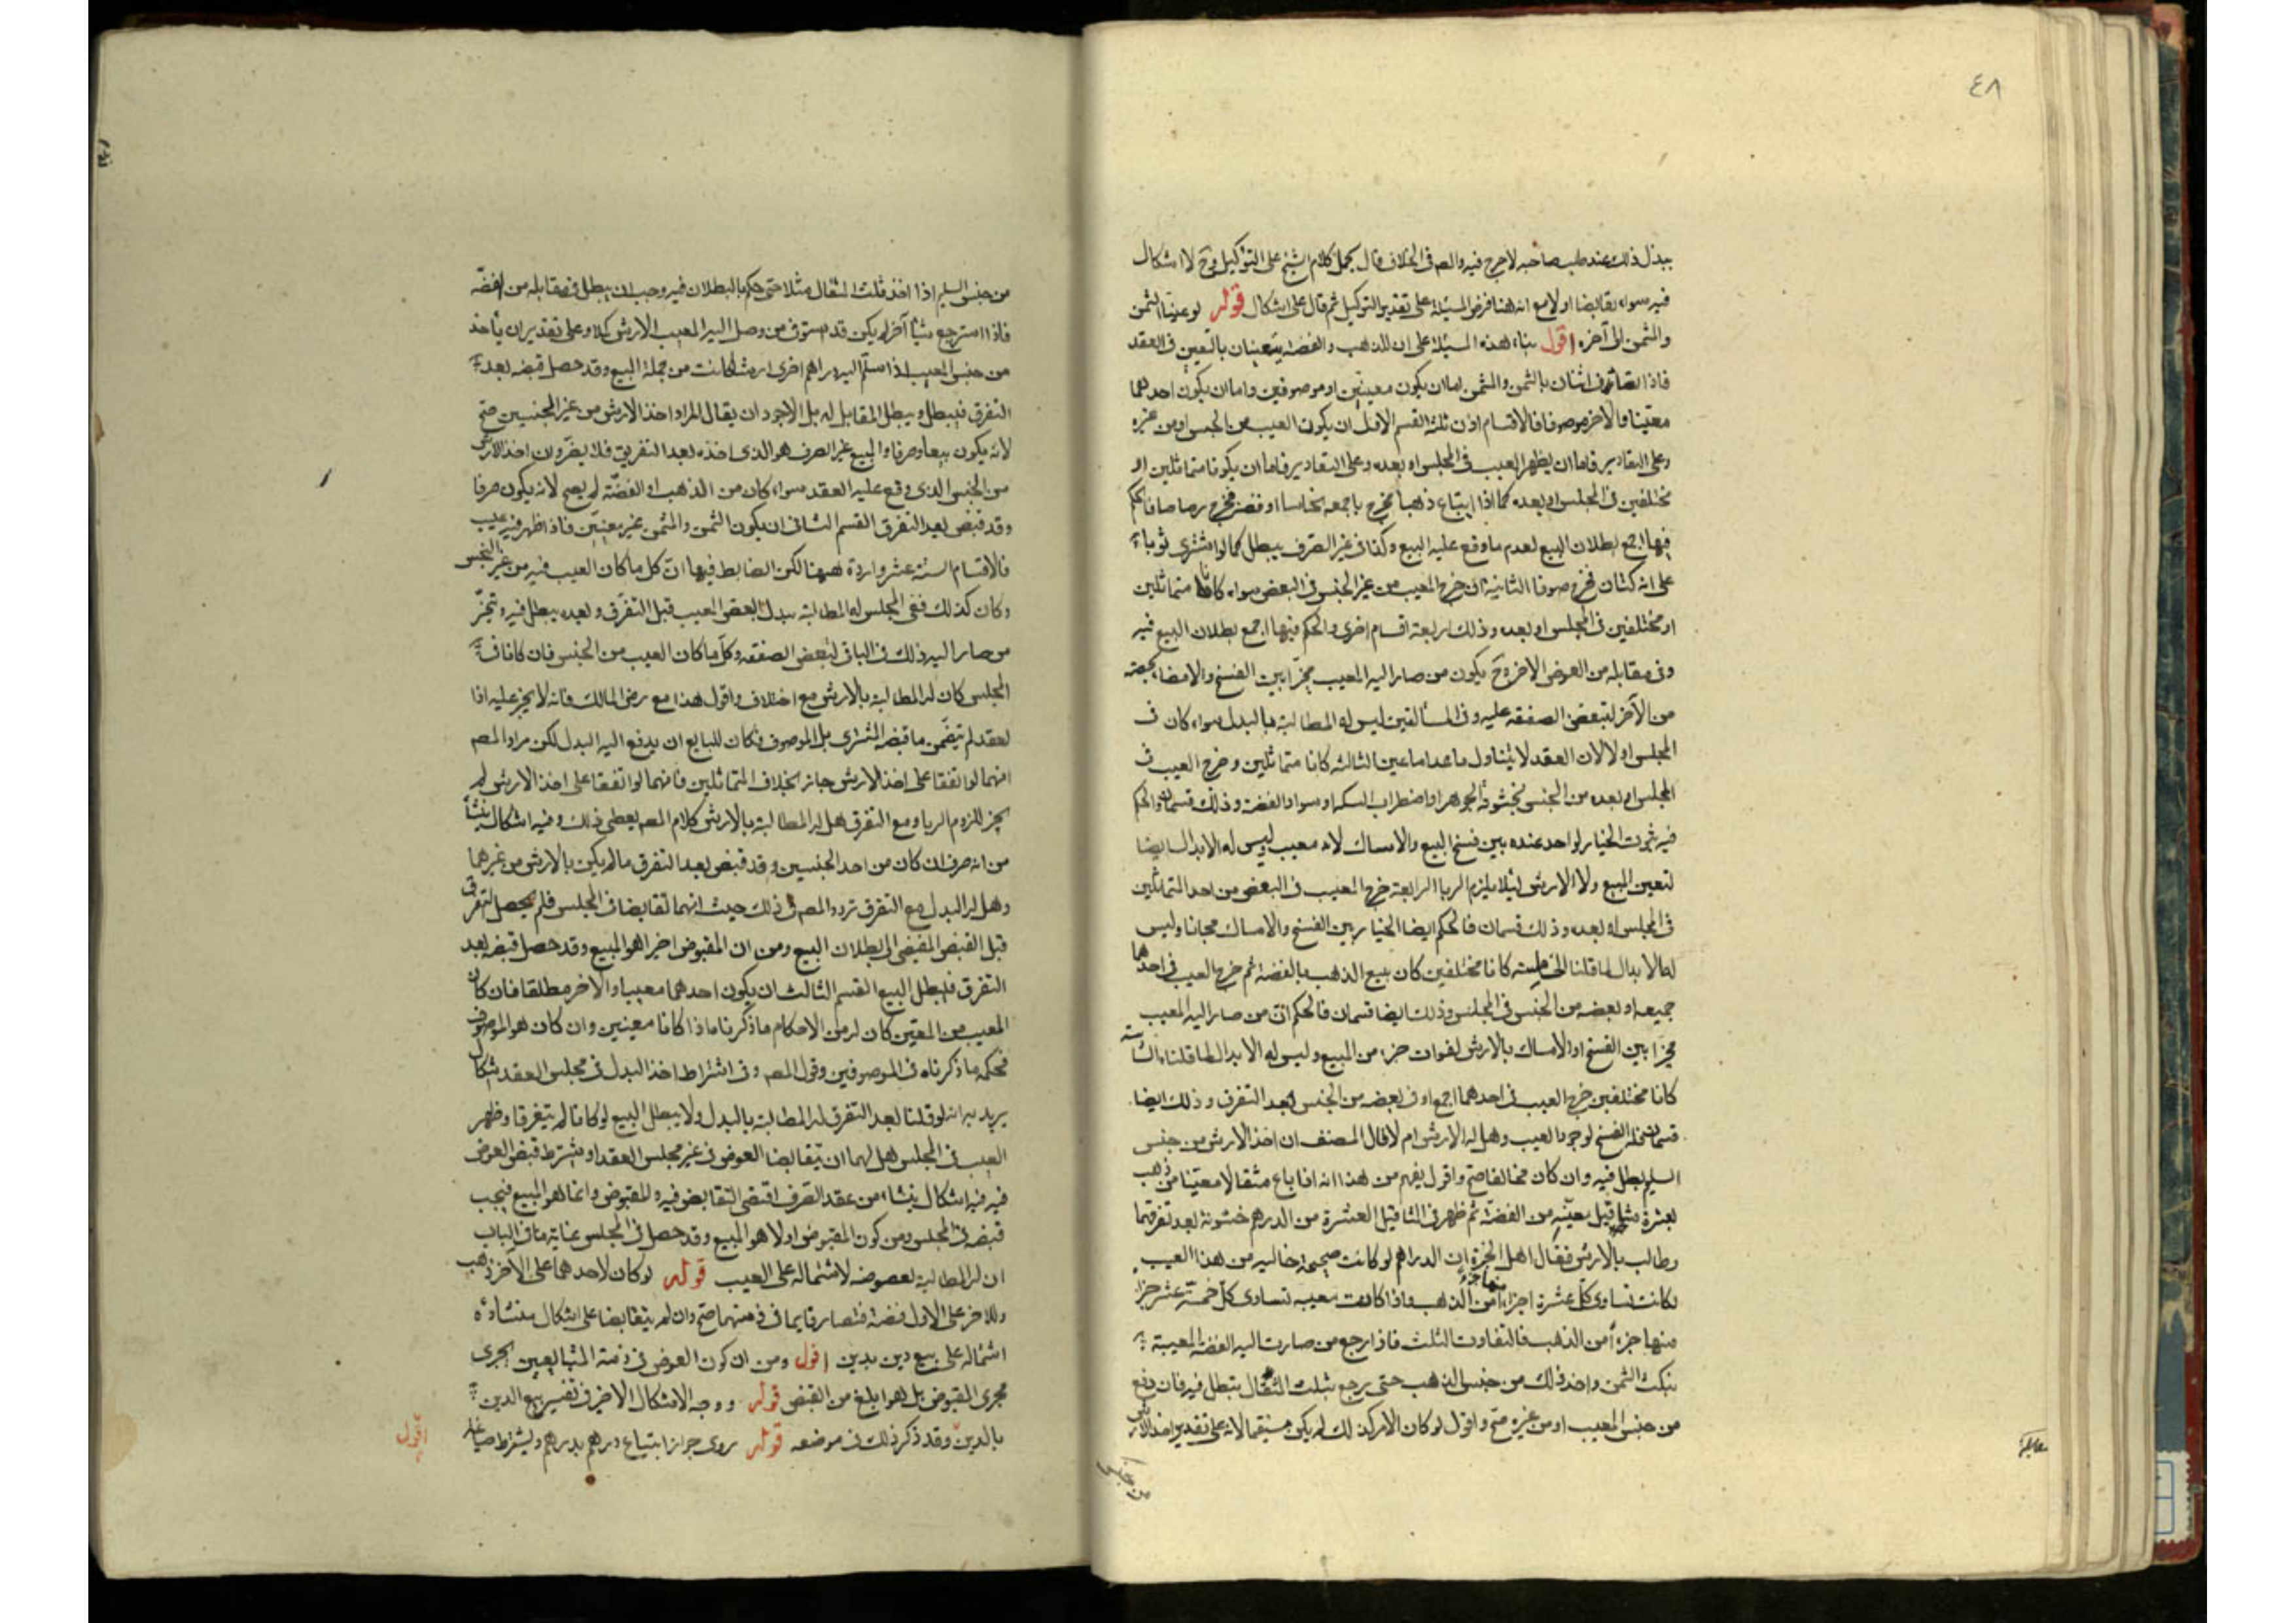 ٤٨
يبذل ذلك عند طلب صاحبه لاحرج فيه والمص فى الخلاف قال يحمل كلام الشيخ على التوكيل وح لا اشكال
فيه سواء تقابضا اولا مع انه هنا فرض المسئلة على تقدير التوكيل ثم قال على اشكال قوله لو عينا الثمن
والمثمن الى آخره اقول بناء هذه المسئلة على ان الذهب والفضة يتعينان بالتعيين فى العقد
فاذا تصارف اثنان بالثمن والمثمن اما ان يكون معينين او موصوفين واما ان يكون احدهما
معينا والآخر موصوفا فالاقسام اذن ثلثة القسم الاول ان يكون العيب من الجنس او من غيره
وعلى التقادير فاما ان يظهر العيب فى المجلس او بعده وعلى التقادير فاما ان يكونا متماثلين او
مختلفين فى المجلس او بعده كما اذا ابتاع ذهبا فخرج باجمعه نحاسا او فضة فخرج رصاصا فالحكم
فيها اجمع بطلان البيع لعدم ما وقع عليه البيع وكذا فى غير الصرف يبطل كما لو اشترى ثوبا
على انه كتان فخرج صوفا الثانية ان خرج المعيب من غير الجنس فى البعض سواء كانا متماثلين
او مختلفين فى المجلس او بعده وذلك اربعة اقسام اخرى والحكم فيها اجمع بطلان البيع فيه
وفى مقابله من العوض الآخر وح يكون من صار اليه المعيب مخيرا بين الفسخ والامضاء بحصته
من الآخر لتبعض الصفقه عليه وفى المسألتين ليس له المطالبة بالبدل سواء كان فى
المجلس او لا لان العقد لا يتناول ما عدا ما عين الثالثه كانا متماثلين وخرج العيب فى
المجلس او بعده من الجنس لخشونة الجوهر او اضطراب السكه او سواد الفضة وذلك قسمان والحكم
فيه ثبوت الخيار لواحد عنده بين فسخ البيع والامساك لانه معيب وليس له الابدال ايضا
لتعين المبيع ولا الارش لئلا يلزم الربا الرابعة خرج المعيب فى البعض من احد المتماثلين
فى المجلس او بعده وذلك قسمان فالحكم ايضا الخيار بين الفسخ والامساك مجانا وليس
له الابدال لما قلنا الخامسه كانا مختلفين كان يبيع الذهب بالفضة ثم خرج العيب فى احدهما
جميعه او بعضه من الجنس فى المجلس وذلك ايضا قسمان فالحكم ان من صار اليه المعيب
مخيرا بين الفسخ او الامساك بالارش لفوات جزء من المبيع وليس له الابدال لما قلناه السادسة
كانا مختلفين خرج العيب فى احدهما اجمع او فى بعضه من الجنس بعد التفرق وذلك ايضا
قسمان فله الفسخ لوجود العيب وهل له الارش ام لا قال المصنف ان اخذ الارش من جنس
السليم بطل فيه وان كان مخالفا صح واقول يفهم من هذا انه اذا باع مثقالا معينا من ذهب
بعشرة مثاقيل معينة من الفضة ثم ظهر فى المثاقيل العشرة من الدرهم خشونة بعد تفرقهما
وطالب بالارش فقال اهل الخبرة ان الدراهم لو كانت صحيحة خاليه من هذا العيب
لكانت تساوى كل عشرة اجزاء منها جزء من الذهب واذا كانت معيبه تساوى كل خمسة عشر جزء
منها جزءا من الذهب فالتفاوت الثلث فاذا رجع من صارت اليه الفضة المعيبة
بثلث الثمن واخذ ذلك من جنس الذهب حتى يرجع بثلث المثقال يبطل فيه فان دفع
من جنس المعيب او من غيره صح واقول لو كان الامر كذلك لم يكن مستقيما لانه على تقدير اخذ الارش
من جنس
من جنس السليم اذا اخذ ثلث المثقال مثلا حتى حكم بالبطلان فيه وجب ان يبطل فى مقابله من الفضة
فاذا استرجع شيئا آخر لم يكن قد استوفى من وصل اليه المعيب الارش كملا وعلى تقدير ان يأخذ
من جنس المعيب اذا سلم اليه دراهم اخرى ارشا كانت من جملة المبيع وقد حصل قبضه بعد
التفرق فيبطل ويبطل المقابل له بل الاجود ان يقال المراد اخذ الارش من غير الجنسين صح
لانه يكون بيعا وصرفا والمبيع غير الصرف هو الذى اخذه بعد التفريق فلا يضر وان اخذ الارش
من الجنس الذى وقع عليه العقد سواء كان من الذهب او الفضة لم يصح لانه يكون صرفا
وقد قبض بعد التفرق القسم الثانى ان يكون الثمن والمثمن غير معينين فاذا ظهر فيه عيب
فالاقسام الستة عشر واردة ههنا لكن الضابط فيها ان كل ما كان العيب فيه من غير الجنس
وكان كذلك ففى المجلس له المطالبة ببدل البعض المعيب قبل التفرق وبعده يبطل فيه ويتخير
من صار اليه ذلك فى الباقى لتبعض الصفقه وكل ما كان العيب من الجنس فان كانا فى
المجلس كان له المطالبة بالارش مع اختلاف واقول هذا مع رضى المالك فانه لا يجبر عليه اذا
العقد لم يتضمن ما قبضه المشترى بل الموصوف فكان للبايع ان يدفع اليه البدل لكن مراد المص
انهما لو اتفقا على اخذ الارش جاز بخلاف المتماثلين فانهما لو اتفقا على اخذ الارش لم
يجز للزوم الربا ومع التفرق هل له المطالبة بالارش كلام المص يعطى ذلك وفيه اشكال ينشأ
من انه صرف ان كان من احد الجنسين وقد قبض بعد التفرق ما لم يكن بالارش من غيرهما
وهل له البدل مع التفرق تردد المص فى ذلك حيث انهما تقابضا فى المجلس فلم يحصل التفرق
قبل القبض المفضى الى بطلان البيع ومن ان المقبوض اخيرا هو المبيع وقد حصل قبضه بعد
التفرق فيبطل البيع القسم الثالث ان يكون احدهما معيبا والآخر مطلقا فان كان
المعيب من المعين كان له من الاحكام ما ذكرناه اذا كانا معينين وان كان هو الموصوف
فحكمه ما ذكرناه فى الموصوفين وقول المص وفى اشتراط اخذ البدل فى مجلس العقد اشكال
يريد به انه لو قلنا بعد التفرق له المطالبة بالبدل ولا يبطل البيع لو كانا لم يتفرقا وظهر
العيب فى المجلس هل لهما ان يتقابضا العوض فى غير مجلس العقد او يشترط قبض العوض
فيه فيه اشكال ينشاء من عقد الصرف اقتضى التقابض فيه والمقبوض وانما هو المبيع فيجب
قبضه فى المجلس ومن كون المقبوض اولا هو المبيع وقد حصل فى المجلس غاية ما فى الباب
ان له المطالبة بعوضه لاشتماله على العيب قوله لو كان لاحدهما على الآخر ذهب
وللاخر على الاول فضة فتصارفا بما فى ذمتهما صح وان لم يتقابضا على اشكال منشاؤه
اشتماله على بيع دين بدين اقول ومن ان كون العوض فى ذمة المتبايعين يجرى
مجرى المقبوض بل هو ابلغ من القبض قوله ووجه الاشكال الاخير فى تفسير بيع الدين
بالدين وقد ذكر ذلك فى موضعه قوله روى جواز ابتياع درهم بدرهم ويشترط صياغة
اقول